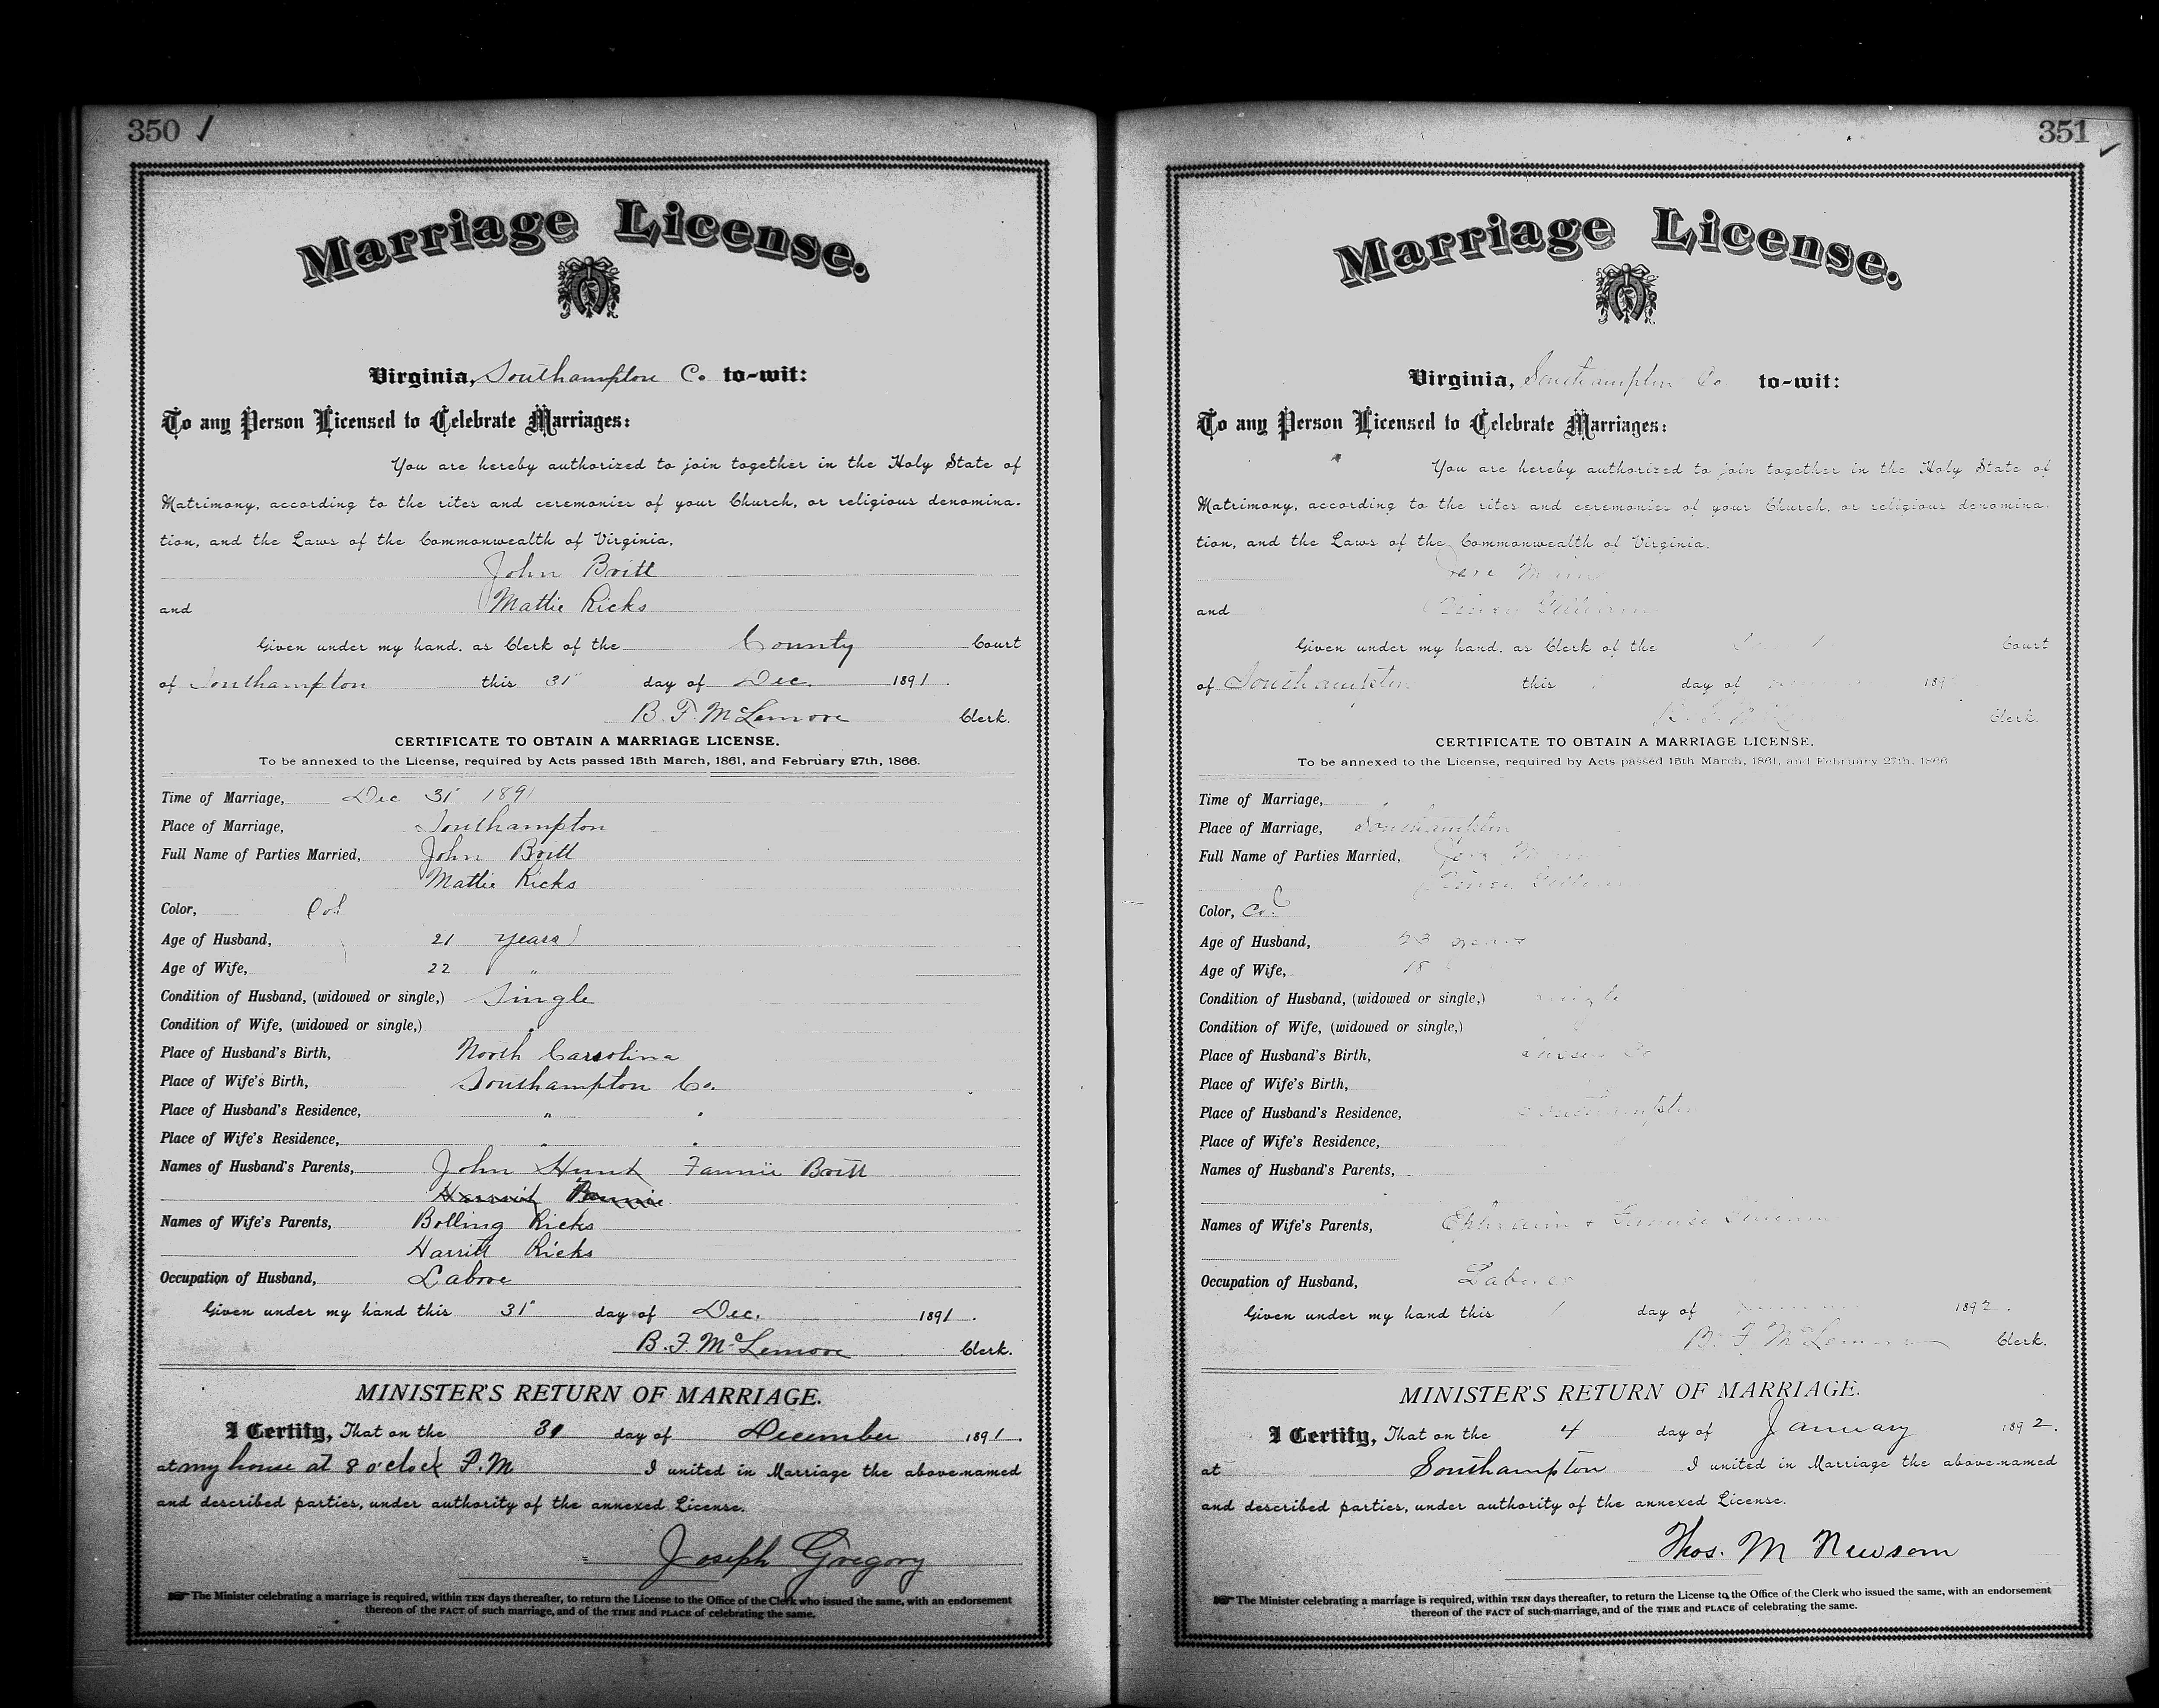 350
Marriage License.
Virginia, Southampton C. to-wit:
To any Person Licensed to Celebrate Marriages:
You are hereby authorized to join together in the Holy State of
Matrimony, according to the rites and ceremonies of your Church, or religious denomina-
tion, and the Laws of the Commonwealth of Virginia,
John Britt
and Mattie Ricks
Given under my hand, as Clerk of the County Court
of Southampton this 31" day of Dec. 1891.
B. F. McLemore Clerk.
CERTIFICATE TO OBTAIN A MARRIAGE LICENSE.
To be annexed to the License, required by Acts passed 15th March, 1861, and February 27th, 1866.
Time of Marriage, Dec 31" 1891
Place of Marriage, Southampton
Full Name of Parties Married, John Britt
Mattie Ricks
Color, Col
Age of Husband, 21 years
Age of Wife, 22 "
Condition of Husband, (widowed or single,) Single
Condition of Wife, (widowed or single,) "
Place of Husband's Birth, North Carolina
Place of Wife's Birth, Southampton Co.
Place of Husband's Residence, " "
Place of Wife's Residence, " "
Names of Husband's Parents, John Hunt Fannie Britt
Names of Wife's Parents, Bolling Ricks
Harritt Ricks
Occupation of Husband, Labore
Given under my hand this 31" day of Dec. 1891.
B. F. McLemore Clerk.
MINISTER'S RETURN OF MARRIAGE.
I Certify, That on the 31 day of December 1891.
at my house at 8 o'clock P.M. I united in Marriage the above-named
and described parties, under authority of the annexed License.
Joseph Gregory
The Minister celebrating a marriage is required, within TEN days thereafter, to return the License to the Office of the Clerk who issued the same, with an endorsement
thereon of the FACT of such marriage, and of the TIME and PLACE of celebrating the same.
351
Marriage License.
Virginia, Southampton Co. to-wit:
To any Person Licensed to Celebrate Marriages:
You are hereby authorized to join together in the Holy State of
Matrimony, according to the rites and ceremonies of your Church, or religious denomina-
tion, and the Laws of the Commonwealth of Virginia,
and
Given under my hand, as Clerk of the Court
of Southampton this day of 189
B. F. Clerk.
CERTIFICATE TO OBTAIN A MARRIAGE LICENSE.
To be annexed to the License, required by Acts passed 15th March, 1861, and February 27th, 1866
Time of Marriage,
Place of Marriage, Southampton
Full Name of Parties Married,
Color, Col
Age of Husband, 23 years
Age of Wife, 18
Condition of Husband, (widowed or single,) single
Condition of Wife, (widowed or single,)
Place of Husband's Birth, Sussex Co
Place of Wife's Birth,
Place of Husband's Residence, Southampton
Place of Wife's Residence,
Names of Husband's Parents,
Names of Wife's Parents, Ephraim +
Occupation of Husband, Laborer
Given under my hand this 1 day of 1892.
B. F. McLemore Clerk.
MINISTER'S RETURN OF MARRIAGE.
I Certify, That on the 4 day of January 1892.
at Southampton I united in Marriage the above-named
and described parties, under authority of the annexed License.
Thos. M Newsom
The Minister celebrating a marriage is required, within TEN days thereafter, to return the License to the Office of the Clerk who issued the same, with an endorsement
thereon of the FACT of such marriage, and of the TIME and PLACE of celebrating the same.